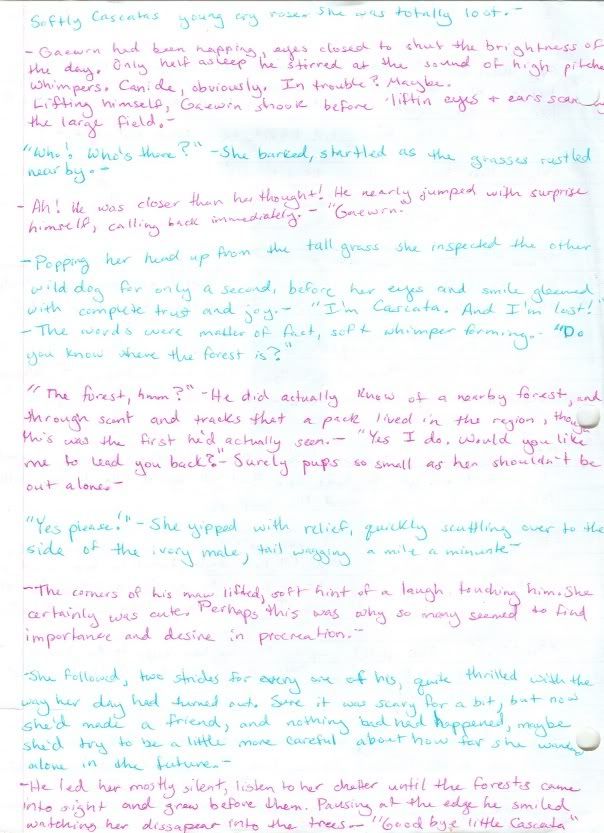 Softly Cascatas young cry rose. She was totally lost.-
-Gaewin had been napping, eyes closed to shut the brightness of
the day. Only half asleep he stirred at the sound of high pitche
whimpers. Canide, obviously. In trouble? Maybe.
Lifting himself, Gaewin shook before liftin eyes + ears scan
the large field.-
"Who! Who's there?" -She barked, startled as the grasses rustled
near by.-
-Ah! He was closer than he thought! He nearly jumped with surprise
himself, calling back immediately.- "Gaewin."
-Popping her head up from the tall grass she inspected the other
wild dog for only a second, before her eyes and smile gleamed
with complete trust and joy.- "I'm Cascata. And I'm lost!"
-The words were matter of fact, soft whimper forming.- "Do
you know where the forest is?"
"The forest, hmm?" -He did actually know of a nearby forest, and
through scent and tracks that a pack lived in the region, though
this was the first he'd actually seen.- "Yes I do. Would you like
me to lead you back?"- Surely pups so small as her shouldn't be
out alone.-
"Yes please!" -She yipped with relief, quickly scuttling over to the
side of the ivory male, tail wagging a mile a minunte-
-The corners of his maw lifted, soft hint of a laugh touching him. She
certainly was cute. Perhaps this was why so many seemed to find
importance and desire in procreation.-
-She followed, two strides for every one of his, quite thrilled with the
way her day had turned out. Sure it was scary for a bit, but now
she'd made a friend, and nothing bad had happened, maybe
she'd try to be a little more careful about how far she
alone in the future.-
-He led her mostly silent, listen to her chatter until the forests came
into sight and grew before them. Pausing at the edge he smiled
watching her dissapear into the trees.- "Good bye little Cascata"